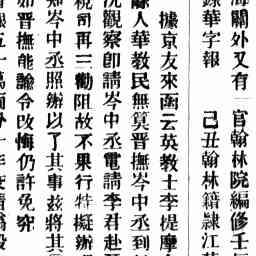 海關外又有一官翰林院編修壬
錄華字報 己丑翰林籍隸江
據京友來函云英教士李提摩
餘人華教民無算晉撫岑中丞到
况觀察卽請岑中丞電請李君赴
稅司再三勸阻故不果行特擬辦
知岑中丞照辦以了其事茲將其
如晉撫能諭令改悔仍許免究
五十萬兩分十年交清